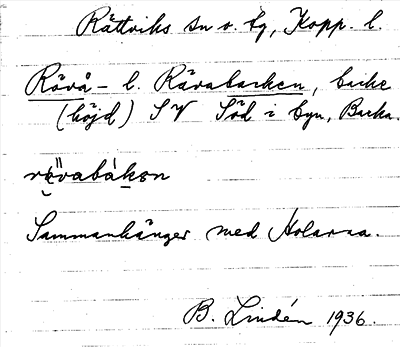 Rättviks sn o. by, Kopp. l.
Rövå- l. Rävabacken, backe
(höjd) SV Söd i byn, Backa.
rävabàkən
Sammanhänger med Holarna.
B. Lindén 1936.